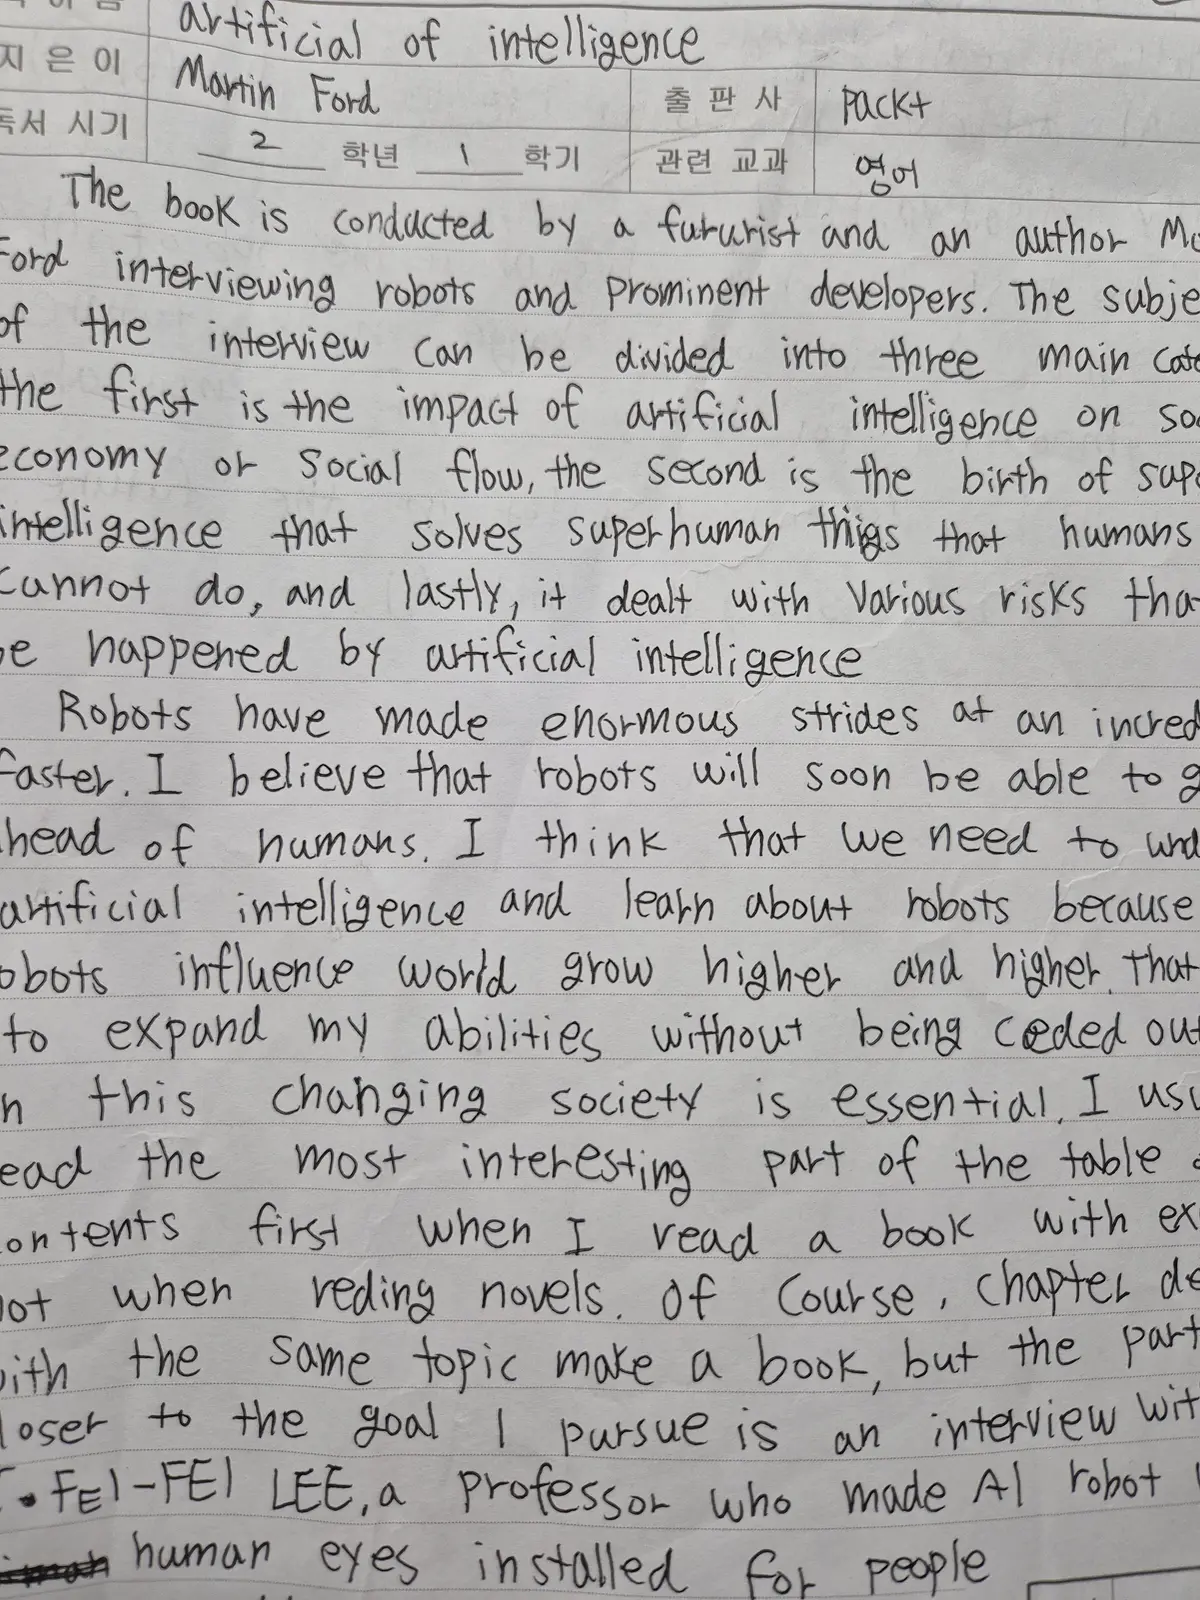 artificial of intelligence
지 은 이 Martin Ford 출 판 사 Packt
독서 시기 2 학년 1 학기 관련 교과 영어
The book is conducted by a futurist and an author Ma
Ford interviewing robots and prominent developers. The subje
of the interview can be divided into three main cate
the first is the impact of artificial intelligence on so
economy or social flow, the second is the birth of supe
intelligence that solves superhuman thigs that humans
cannot do, and lastly, it dealt with various risks tha
be happened by artificial intelligence
Robots have made enormous strides at an incred
faster. I believe that robots will soon be able to g
head of humans. I think that we need to und
artificial intelligence and learn about robots because
obots influence world grow higher and higher. That
to expand my abilities without being ceded out
n this changing society is essential. I usu
ead the most interesting part of the table
ontents first when I read a book with ex
not when reding novels. Of course, chapter de
with the same topic make a book, but the part
loser to the goal I pursue is an interview wit
FEI-FEI LEE, a professor who made AI robot
human eyes installed for people